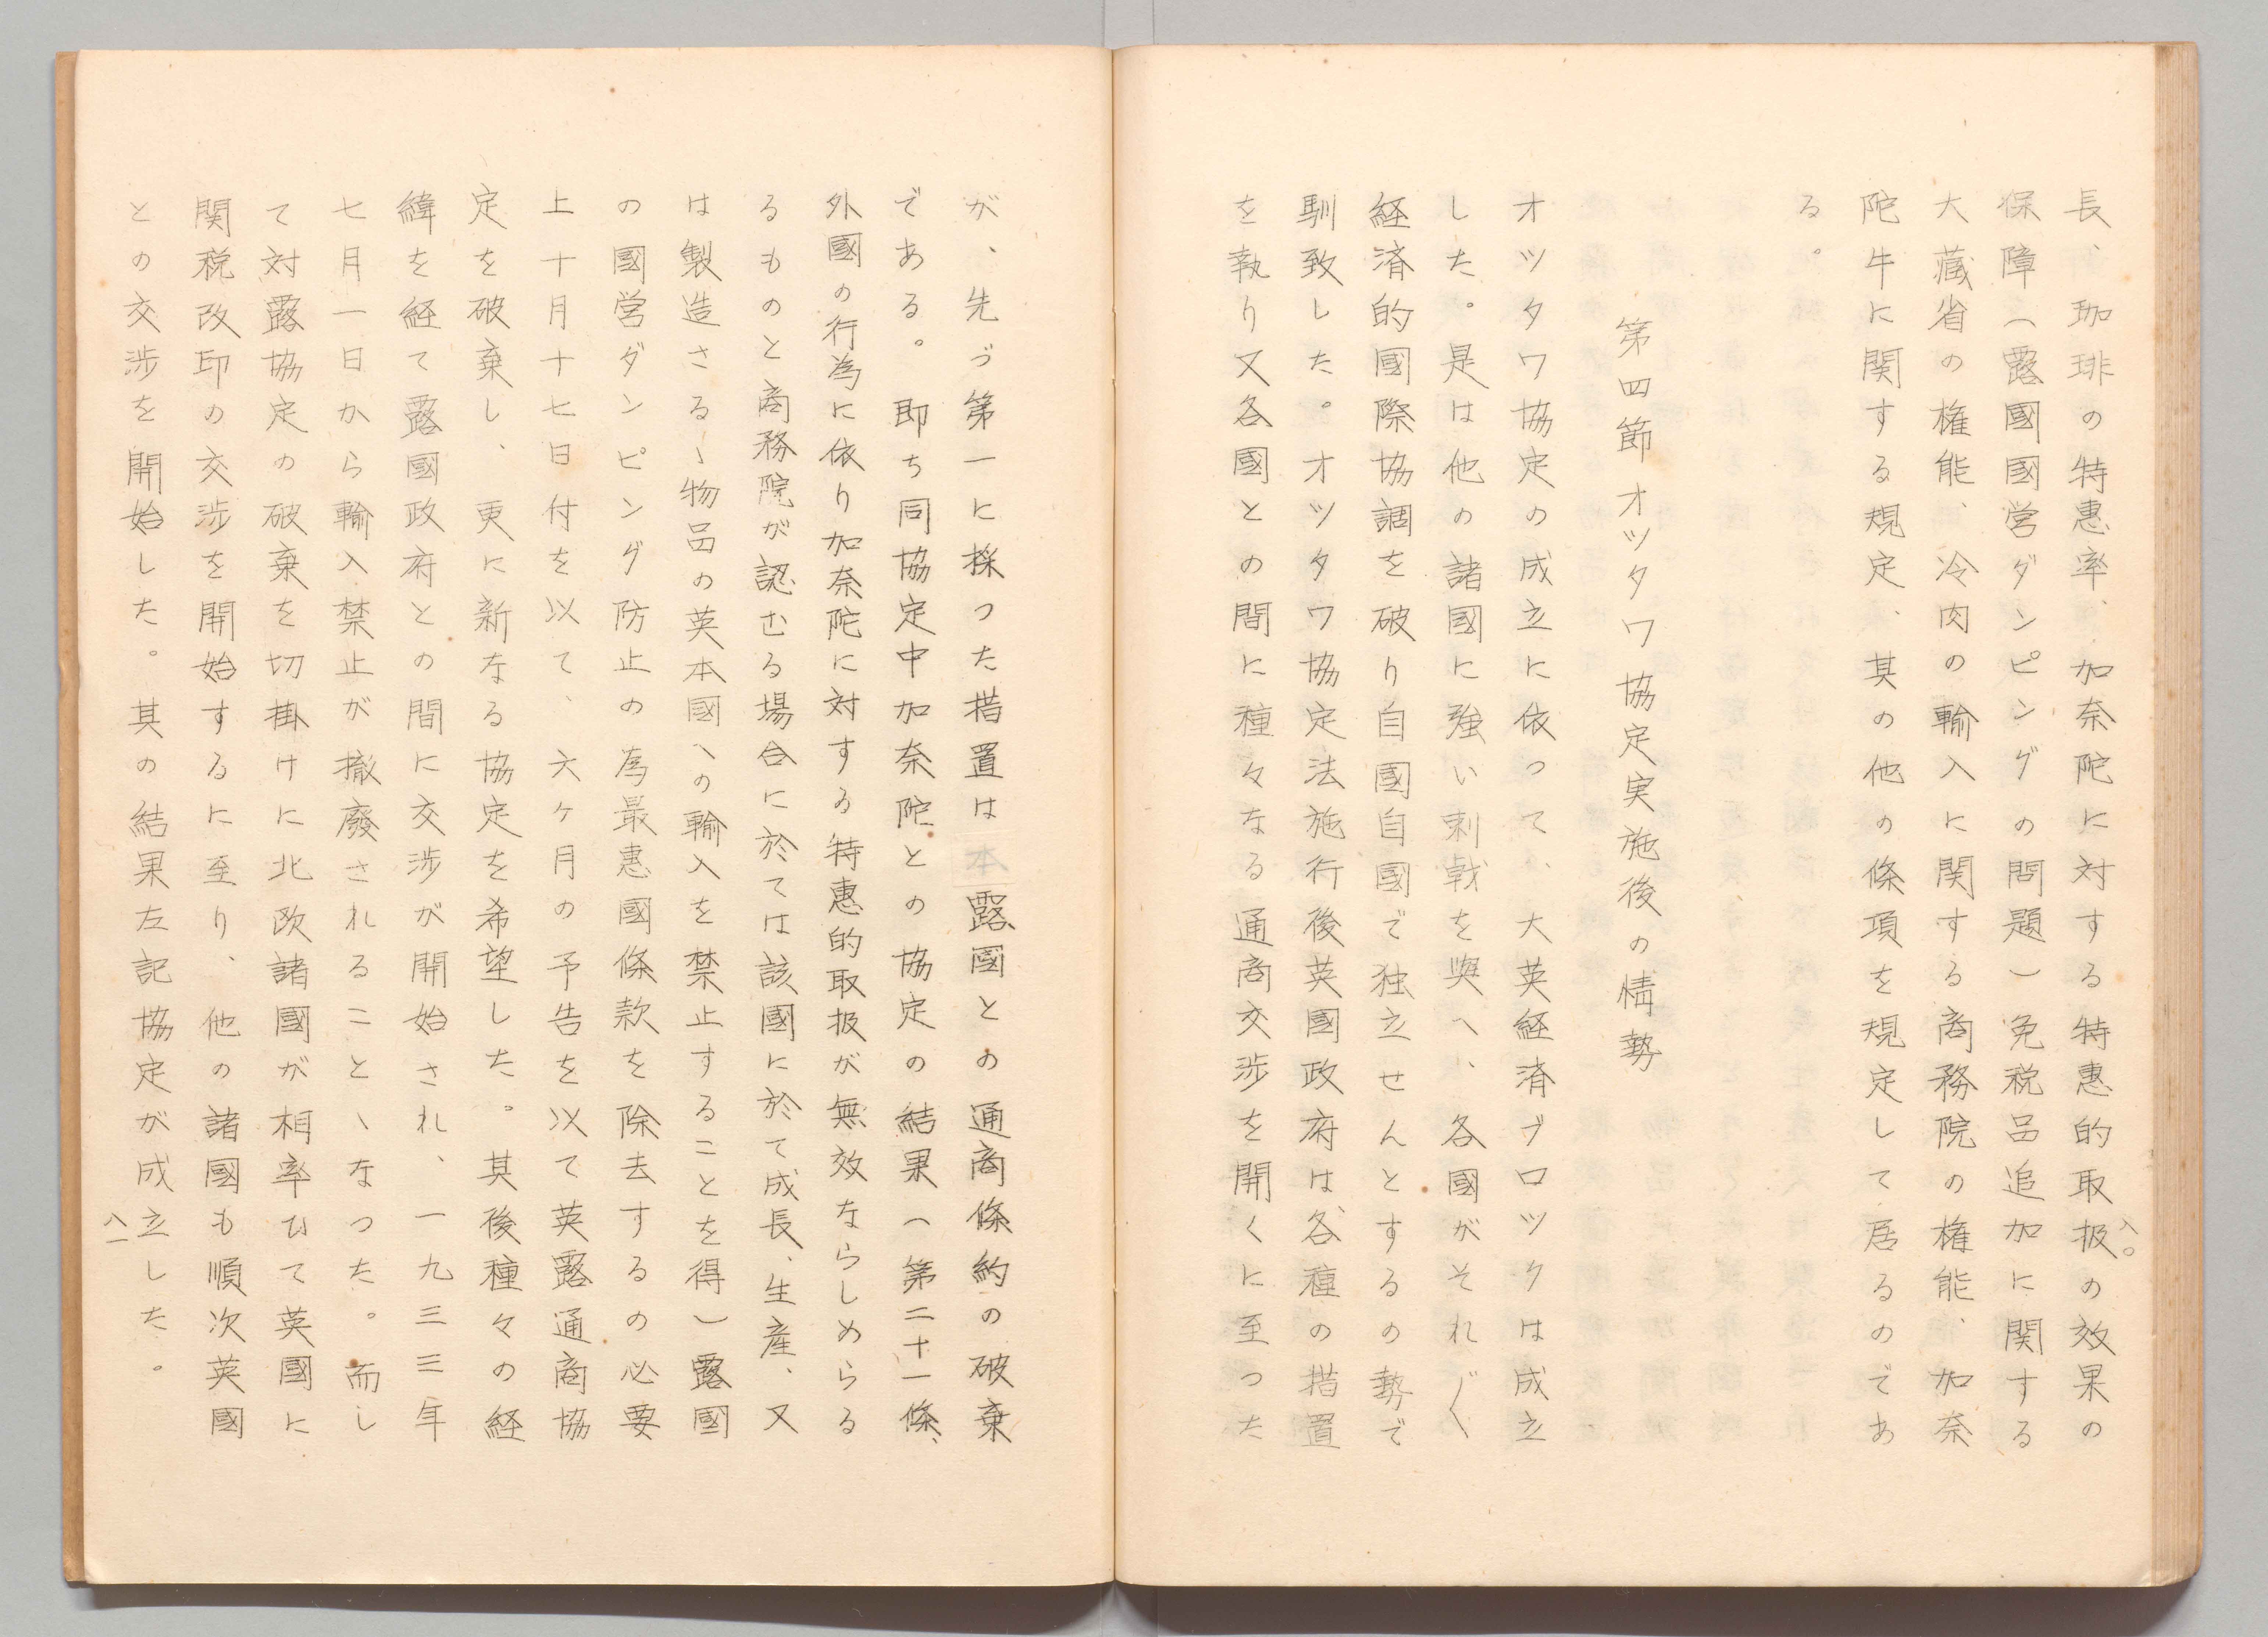 長、珈琲の特惠率、加奈陀に対する特惠的取扱の效果の
保障（露國國営ダンピングの問題）免税品追加に関する
大藏省の権能、冷肉の輸入に関する商務院の権能、加奈
陀牛に関する規定、其の他の條項を規定して居るのであ
る。
第四節 オッタワ協定実施後の情勢
オッタワ協定の成立に依って、大英経済ブロックは成立
した。是は他の諸國に強い刺戟を與へ、各國がそれ〴〵
経済的國際協調を破り自國自國で独立せんとするの勢で
馴致した。オッタワ協定法施行後英國政府は、各種の措置
を執り又各國との間に種々なる通商交渉を開くに至った
八〇
が、先づ第一に採つた措置は露國との通商條約の破棄
である。即ち同協定中加奈陀との協定の結果（第二十一條、
外國の行為に依り加奈陀に対する特惠的取扱が無效ならしめらる
るものと商務院が認むる場合に於ては該國に於て成長、生産、又
は製造さるゝ物品の英本國への輸入を禁止することを得）露國
の國営ダンピング防止の為最惠國條款を除去するの必要
上十月十七日付を以て、六ヶ月の予告を以て英露通商協
定を破棄し、更に新なる協定を希望した。其後種々の経
緯を経て露國政府との間に交渉が開始され、一九三三年
七月一日から輸入禁止が撤廢されることゝなつた。而し
て対露協定の破棄を切掛けに北欧諸國が相率ひて英國に
関税改印の交渉を開始するに至り、他の諸國も順次英國
との交渉を開始した。其の結果左記協定が成立した。
八一